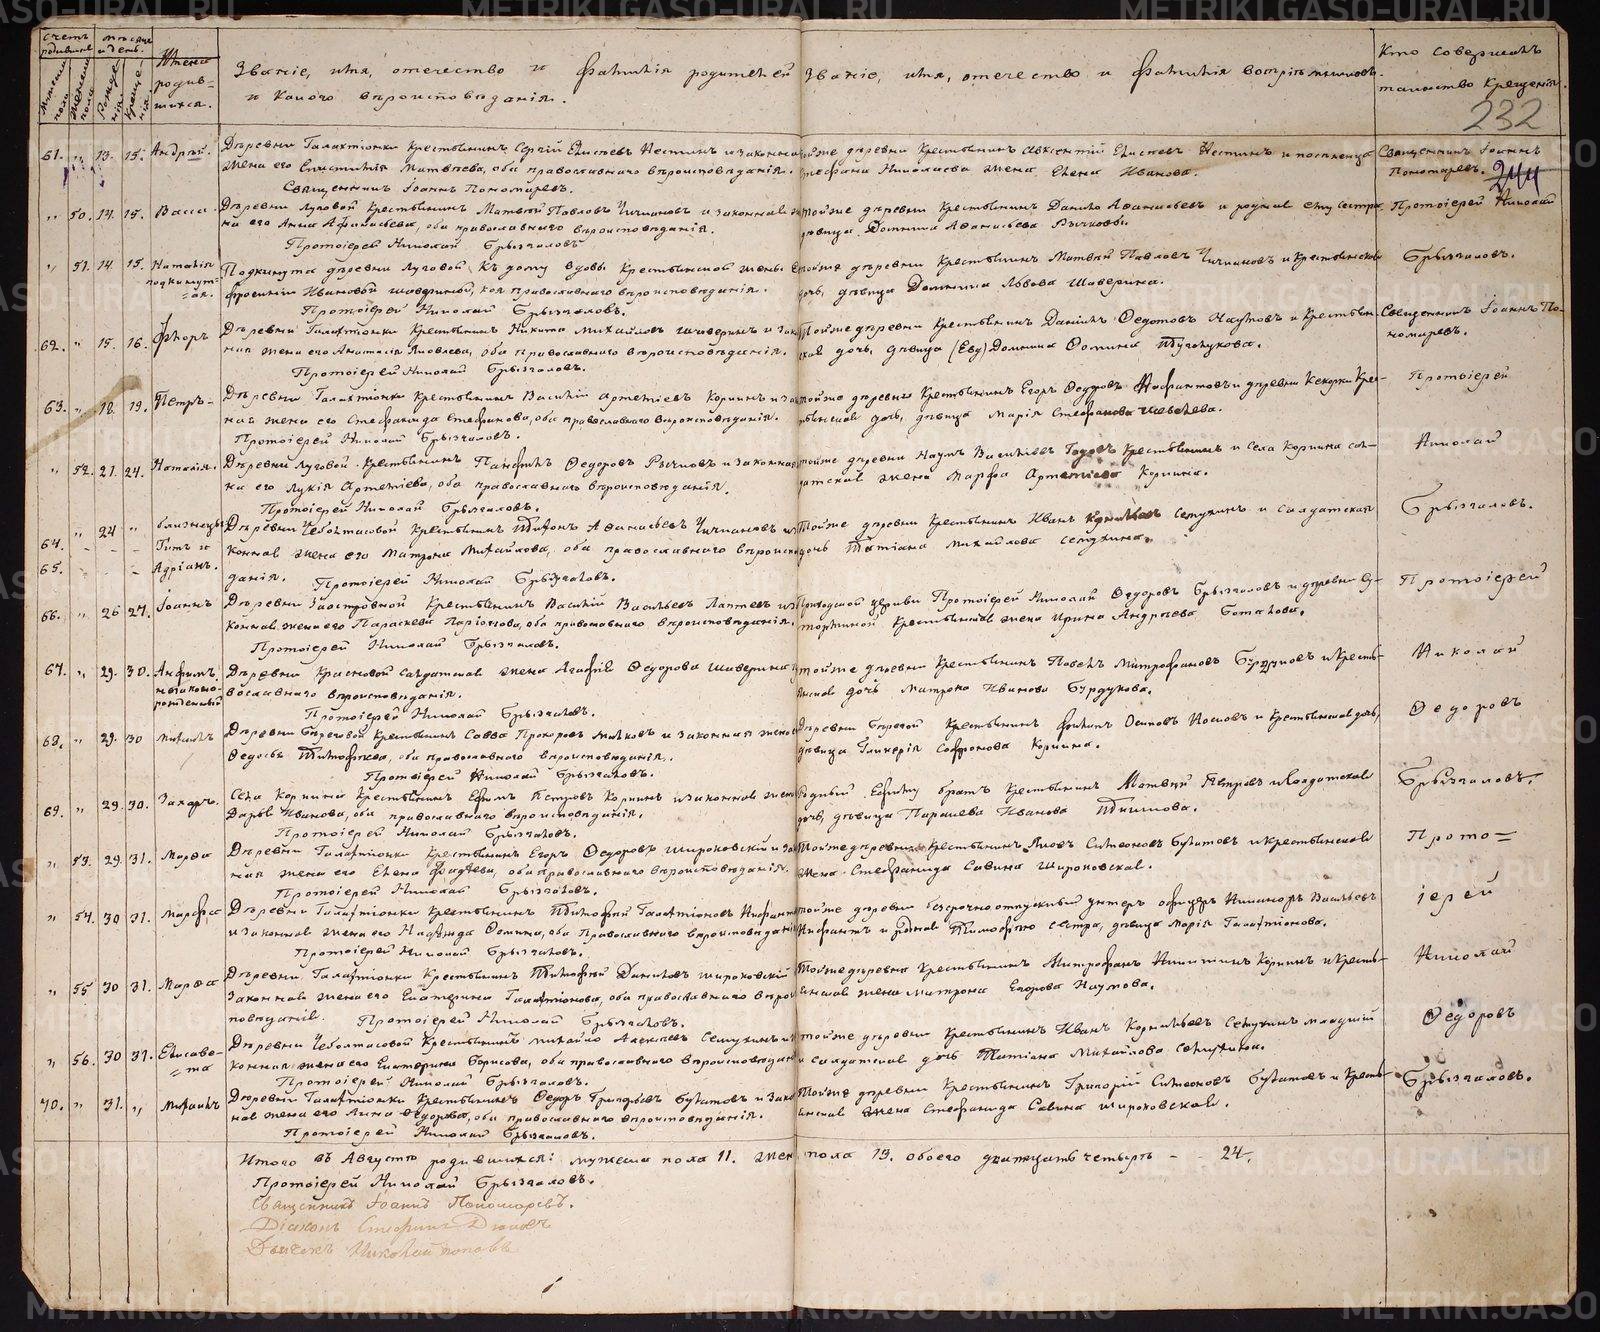 METRIKI.GASO-URAL.RU
Счетъ родившихся
мѣсяцъ и день.
Имена родив-
шихся.
Званіе, имя, отечество и фамилія родителей
и какого вѣроисповѣданія.
Званіе, имя, отечество и фамилія воспріемниковъ.
Кто совершалъ
таинство крещенія.
232
244
61. „ 13. 15. Андрей.
Деревни Галактіонки крестьянинъ Сергій Елисеевъ и законная
жена его Матвѣева, оба православнаго вѣроисповѣданія.
Священникъ Іоаннъ Пономаревъ.
тойже деревни крестьянинъ Авксентій Елисеевъ и
Стефана Николаева жена Елена Иванова.
Священникъ Іоаннъ
Пономаревъ.
„ 50. 14. 15. Васса.
Деревни Луговой крестьянинъ Матвѣй Павловъ Чичкановъ и законная же-
на его Анна Афанасьева, оба православнаго вѣроисповѣданія.
Протоіерей Николай Брызгаловъ
тойже деревни крестьянинъ Данило Афанасьевъ и родная ему сестра
дѣвица Домника Афанасьева Рычковы.
Протоіерей Николай
„ 51. 14. 15. Наталія
подкинут-
ая.
Подкинута деревни Луговой къ дому вдовы крестьянской жены
Ивановой Шавериной, коя православнаго вѣроисповѣданія.
Протоіерей Николай Брызгаловъ.
тойже деревни крестьянинъ Матвѣй Павловъ Чичкановъ и крестьянская
дочь, дѣвица Домника Львова Шаверина.
Брызгаловъ.
62. „ 15. 16. Флоръ
Деревни Галактіонки крестьянинъ Никита Михайловъ Шаверинъ и закон-
ная жена его Анастасія Яковлева, оба православнаго вѣроисповѣданія.
Протоіерей Николай Брызгаловъ.
Тойже деревни крестьянинъ Даніилъ Федотовъ Наумовъ и крестьян-
ская дочь, дѣвица (Евд) Домника Фомина
Священникъ Іоаннъ По-
номаревъ.
63. „ 18. 19. Петръ
Деревни Галактіонки крестьянинъ Василій Артеміевъ Коркинъ и закон-
ная жена его Стефанида Стефанова, оба православнаго вѣроисповѣданія.
Протоіерей Николай Брызгаловъ.
тойже деревни крестьянинъ Егоръ Федоровъ и деревни Кекорки крес-
тьянская дочь, дѣвица Марія Стефанова
Протоіерей
„ 52. 21. 24. Наталія.
Деревни Луговой крестьянинъ Панфилъ Федоровъ Рычковъ и законная же-
на его Лукія Артеміева, оба православнаго вѣроисповѣданія.
Протоіерей Николай Брызгаловъ.
тойже деревни Наумъ Васильевъ крестьянинъ и села Коркина сол-
датская жена Марфа Артеміева Коркина.
Николай
64. 65. „ 24 „ близнецы
Титъ и
Адріанъ.
Деревни Чеболтасовой крестьянинъ Тихонъ Афанасьевъ Чичкановъ и за-
конная жена его Матрона Михайлова, оба православнаго вѣроиспо-
данія. Протоіерей Николай Брызгаловъ.
Тойже деревни крестьянинъ Иванъ Корнильевъ Семухинъ и солдатская
дочь Татіана Михайлова Семухина.
Брызгаловъ.
66. „ 26 27. Іоаннъ
Деревни Заостровной крестьянинъ Василій Васильевъ Лаптевъ и за-
конная жена его Параскева Ларіонова, оба православнаго вѣроисповѣданія.
Протоіерей Николай Брызгаловъ.
Приходской церкви Протоіерей Николай Федоровъ Брызгаловъ и деревни
крестьянская жена Ирина Андреева
Протоіерей
67. „ 29. 30. Анфимъ
незаконно-
рожденный
Деревни Красновой солдатская жена Агафія Федорова Шаверина пра-
вославнаго вѣроисповѣданія.
Протоіерей Николай Брызгаловъ.
тойже деревни крестьянинъ Павелъ Митрофановъ Бурдуковъ и кресть-
янская дочь Матрона Иванова Бурдукова.
Николай
68. „ 29. 30 Михаилъ
Деревни Береговой крестьянинъ Савва Прохоровъ и законная жена
Федосья Тимофѣева, оба православнаго вѣроисповѣданія.
Протоіерей Николай Брызгаловъ.
Деревни Береговой крестьянинъ Филипъ Осиповъ Носковъ и крестьянская дочь,
дѣвица Гликерія Софронова Коркина.
Федоровъ
69. „ 29. 30. Захаръ.
Села Коркина крестьянинъ Ефимъ Петровъ Коркинъ и законная жена
Дарья Иванова, оба православнаго вѣроисповѣданія.
Протоіерей Николай Брызгаловъ.
Родный Ефиму братъ крестьянинъ Матвѣй Петровъ и солдатская
дочь, дѣвица Параскева Иванова
Брызгаловъ.
„ 53. 29. 31. Марфа
Деревни Галактіонки крестьянинъ Егоръ Федоровъ Широковскій и закон-
ная жена его Елена Фадѣева, оба православнаго вѣроисповѣданія.
Протоіерей Николай Брызгаловъ.
Тойже деревни крестьянинъ Яковъ Симеоновъ Булатовъ и крестьянская
жена Стефанида Савина Широковская.
Прото-
„ 54. 30 31. Марфа
Деревни Галактіонки крестьянинъ Тимофей Галактіоновъ
и законная жена его Надежда Фомина, оба православнаго вѣроисповѣданія
Протоіерей Николай Брызгаловъ.
тойже деревни безсрочноотпускный унтеръ офицеръ Никаноръ Васильевъ
и родная Тимофею сестра, дѣвица Марія Галактіонова.
іерей
„ 55 30 31. Марфа
Деревни Галактіонки крестьянинъ Тимофей Даниловъ Широковскій
законная жена его Екатерина Галактіонова, оба православнаго вѣроис-
повѣданія. Протоіерей Николай Брызгаловъ.
Тойже деревни крестьянинъ Митрофанъ Никитинъ Коркинъ и кресть-
янская жена Матрона Егорова Наумова.
Николай
„ 56. 30 31. Елисаве-
та
Деревни Чеболтасовой крестьянинъ Михайло Алексѣевъ Семухинъ и за-
конная жена его Екатерина Борисова, оба православнаго вѣроисповѣданія
Протоіерей Николай Брызгаловъ.
тойже деревни крестьянинъ Иванъ Корнильевъ Семухинъ младшій
и солдатская дочь Татіана Михайлова Семухина.
Федоровъ
70. „ 31. „ Михаилъ
Деревни Галактіонки крестьянинъ Федоръ Булатовъ и закон-
ная жена его Анна Федорова, оба православнаго вѣроисповѣданія.
Протоіерей Николай Брызгаловъ.
Тойже деревни крестьянинъ Григорій Симеоновъ Булатовъ и кресть-
янская жена Стефанида Савина Широковская.
Брызгаловъ.
Итого въ Августѣ родившихся: мужеска пола 11. женска пола 13. обоего двадцать четыре - - 24.
Протоіерей Николай Брызгаловъ.
Священникъ Іоаннъ Пономаревъ.
Діаконъ Стефанъ
Дьячекъ Николай Поповъ
METRIKI.GASO-URAL.RU